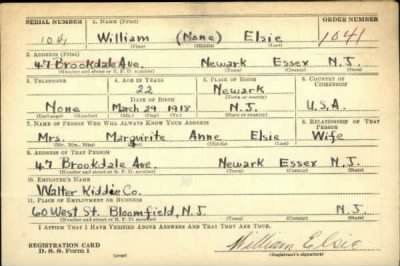 SERIAL NUMBER 1. NAME (Print) ORDER NUMBER
1041 William (None) Elsie 1041
(First) (Middle) (Last)
2. ADDRESS (Print)
47 Brookdale Ave. Newark Essex N.J.
(Number and street or R. F. D. number) (Town) (County) (State)
3. TELEPHONE 4. AGE IN YEARS 5. PLACE OF BIRTH 6. COUNTRY OF CITIZENSHIP
22 Newark
DATE OF BIRTH (Town or county)
None March 29 1918 N.J. U.S.A.
(Exchange) (Number) (Mo.) (Day) (Yr.) (State or country)
7. NAME OF PERSON WHO WILL ALWAYS KNOW YOUR ADDRESS 8. RELATIONSHIP OF THAT PERSON
Mrs. Marguirite Anne Elsie Wife
(Mr., Mrs., Miss) (First) (Middle) (Last)
9. ADDRESS OF THAT PERSON
47 Brookdale Ave. Newark Essex N.J.
(Number and street or R. F. D. number) (Town) (County) (State)
10. EMPLOYER'S NAME
Walter Kiddie Co.
11. PLACE OF EMPLOYMENT OR BUSINESS
60 West St. Bloomfield, N.J. N.J.
(Number and street or R. F. D. number) (Town) (County) (State)
I AFFIRM THAT I HAVE VERIFIED ABOVE ANSWERS AND THAT THEY ARE TRUE.
REGISTRATION CARD
D. S. S. Form 1 (over) William Elsie
(Registrant's signature)